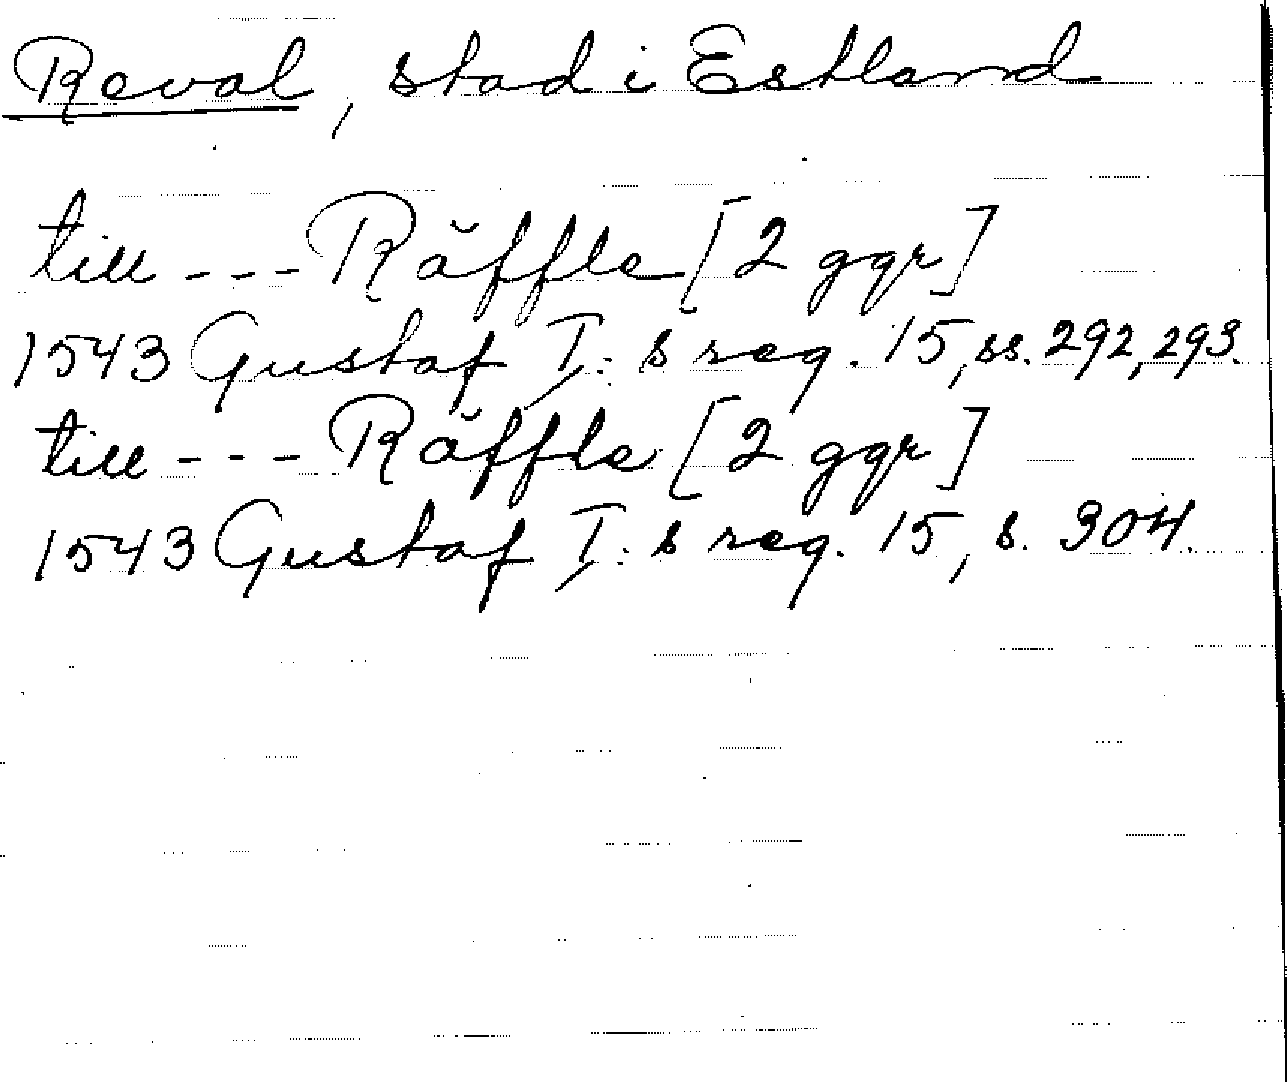 Reval, stad i Estland
till --- Räffle [2 ggr]
1543 Gustaf I:s reg. 15, ss. 292, 293.
till --- Räffle [2 ggr]
1543 Gustaf I:s reg. 15, s. 304.